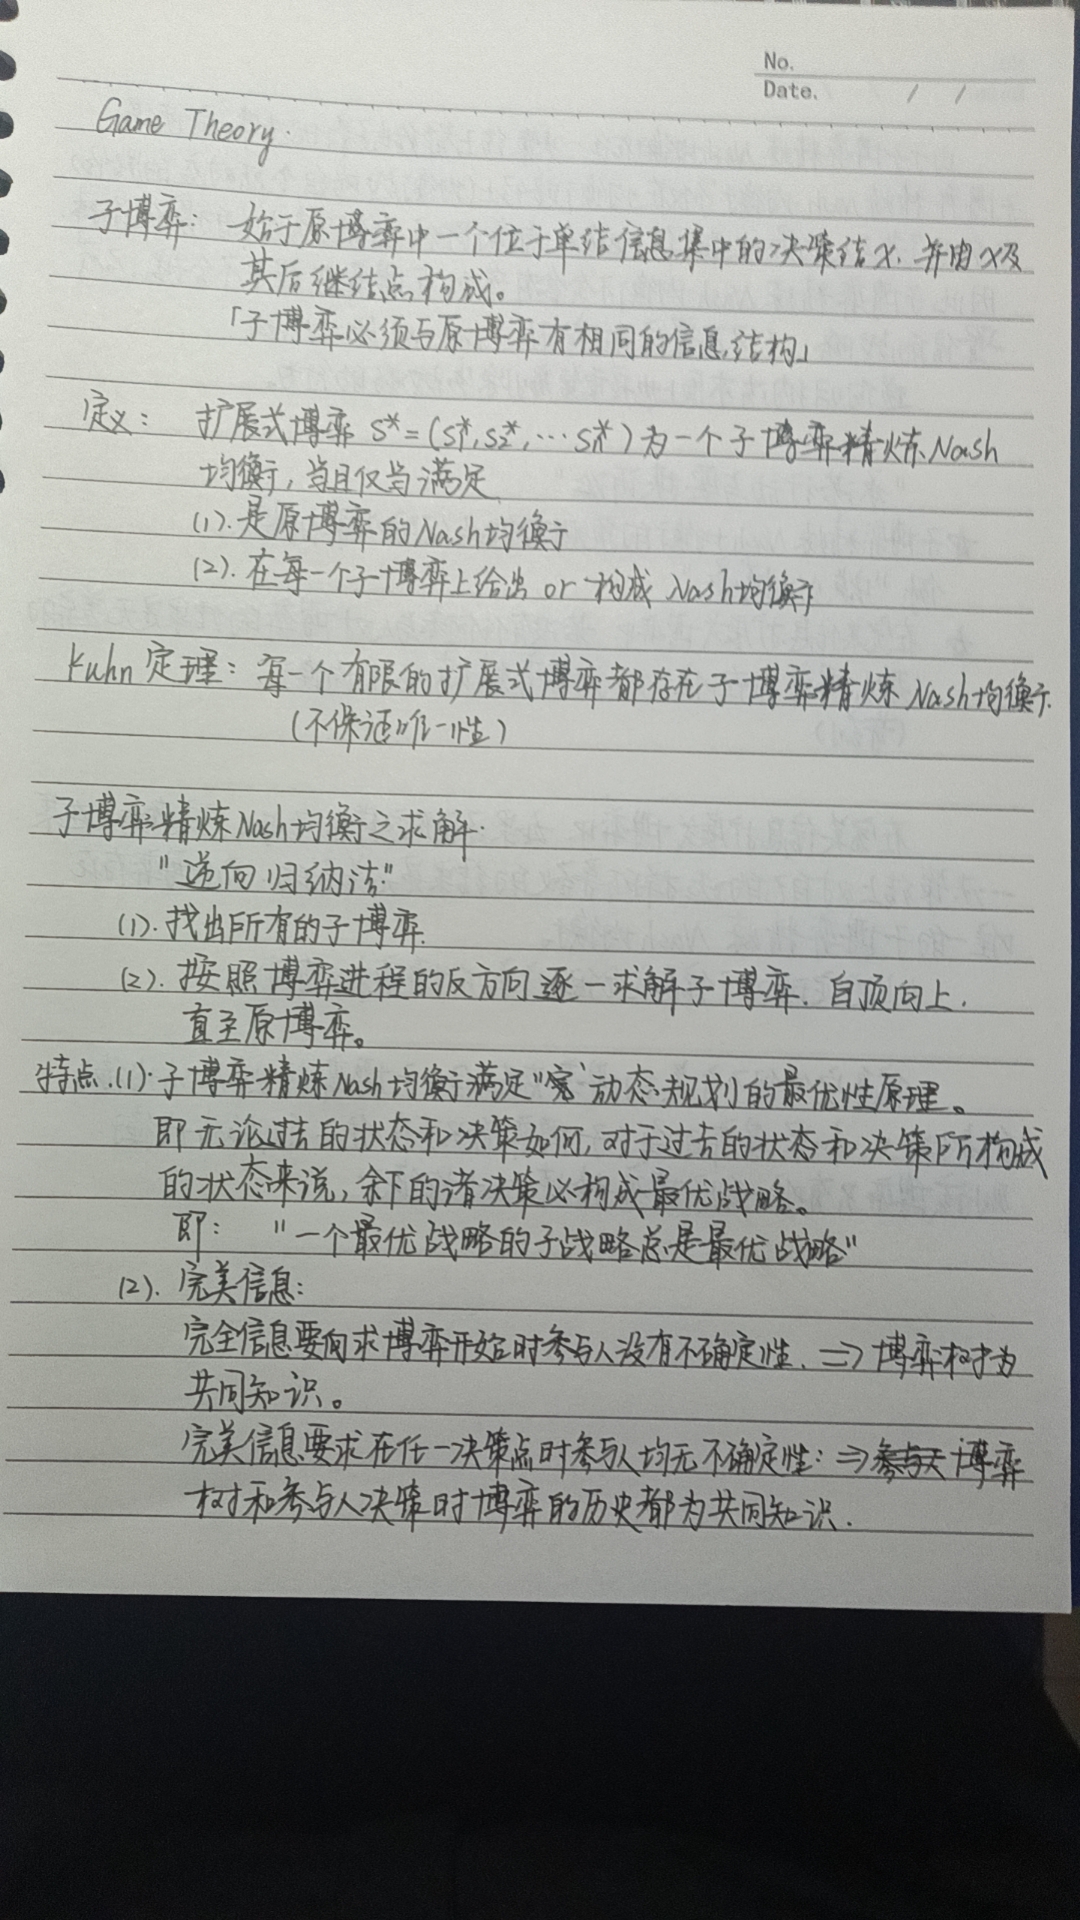 No.
Date. / /
Game Theory.
子博弈: 始于原博弈中一个位于单结信息集中的决策结x. 并由x及
其后继结点构成。
「子博弈必须与原博弈有相同的信息结构」
定义: 扩展式博弈 S*=(S1*,S2*,…Sn*)为一个子博弈精炼Nash
均衡, 当且仅当满足
(1). 是原博弈的Nash均衡
(2). 在每一个子博弈上给出 or 构成 Nash均衡
Kuhn 定理: 每一个有限的扩展式博弈都存在子博弈精炼 Nash均衡.
(不保证唯一性)
子博弈精炼Nash均衡之求解.
"逆向归纳法"
(1). 找出所有的子博弈.
(2). 按照博弈进程的反方向逐一求解子博弈. 自顶向上.
直至原博弈。
特点.(1). 子博弈精炼Nash均衡满足" 动态规划的最优性原理。
即无论过去的状态和决策如何, 对于过去的状态和决策所构成
的状态来说, 余下的诸决策必构成最优战略。
即: "一个最优战略的子战略总是最优战略"
(2). 完美信息:
完全信息要求博弈开始时参与人没有不确定性. ⇒ 博弈树为
共同知识。
完美信息要求在任一决策点时参与人均无不确定性: ⇒ 博弈
树和参与人决策时博弈的历史都为共同知识.